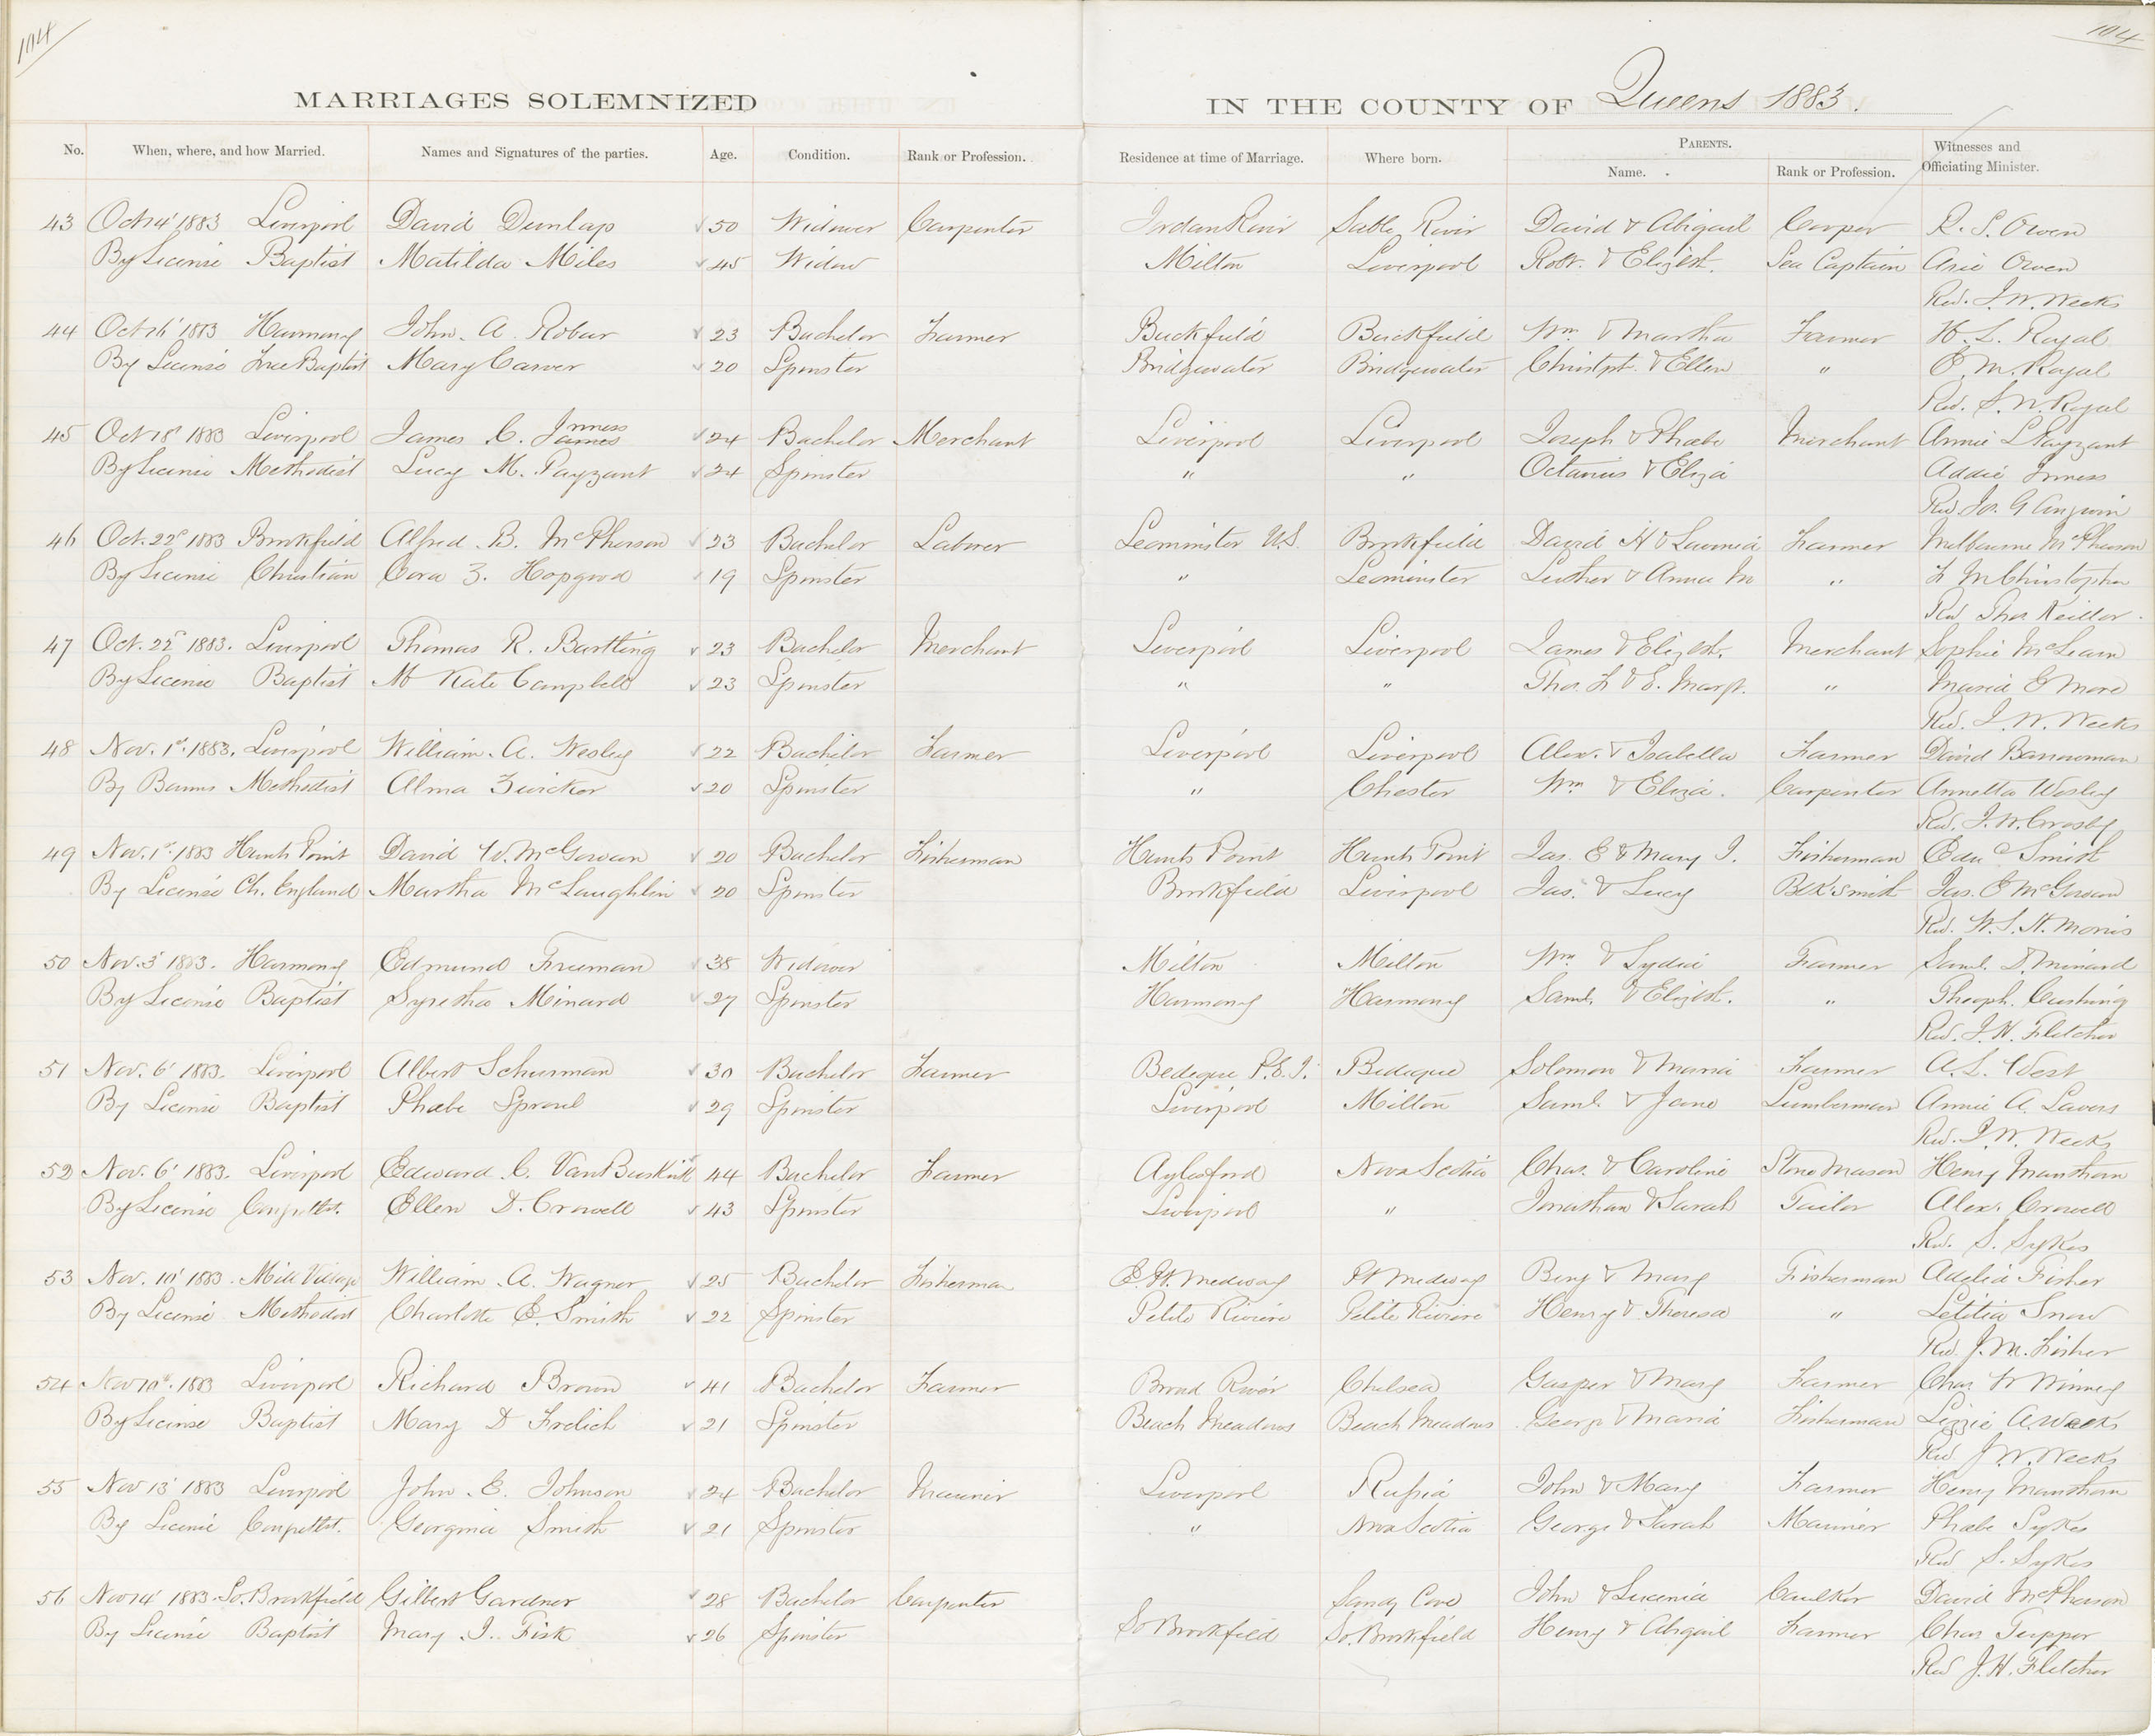 104
104
MARRIAGES SOLEMNIZED IN THE COUNTY OF Queens 1883.
No. When, where, and how Married. Names and Signatures of the parties. Age. Condition. Rank or Profession. Residence at time of Marriage. Where born. PARENTS. Witnesses and
Name. Rank or Profession. Officiating Minister.
43 Oct 4' 1883 Liverpool David Dunlap 50 Widower Carpenter Jordan River Sable River David & Abigail R. S. Owen
By License Baptist Matilda Miles 45 Widow Milton Liverpool Robt. & Elizbt. Sea Captain Owen
Rev. I. W. Weeks
44 Oct 16' 1883 Harmony John A. Robar 23 Bachelor Farmer Buckfield Buckfield Wm & Martha Farmer H. L. Royal
By License Free Baptist Mary Carver 20 Spinster Bridgewater Bridgewater Christpr. & Ellen " E. M. Royal
Rev. S. N. Royal
45 Oct 18' 1883 Liverpool James C. Inness 24 Bachelor Merchant Liverpool Liverpool Joseph & Phebe Merchant Annie L Payzant
By License Methodist Lucy M. Payzant 24 Spinster " " Octavius & Eliza Addie Inness
Rev. Jos. G Angwin
46 Oct. 22d 1883 Brookfield Alfred B. McPherson 23 Bachelor Laborer Leominster U.S. Brookfield David H & Lavinia Farmer Melbourne McPherson
By License Christian Cora Z. Hapgood 19 Spinster " Leominster Luther & Anna M " L M Christopher
Rev Thos Keillor.
47 Oct. 22d 1883. Liverpool Thomas R. Bartling 23 Bachelor Merchant Liverpool Liverpool James & Elizbt. Merchant Sophie McLearn
By License Baptist M Kate Campbell 23 Spinster " " Thos. L & E. Margt. " Maria E More
Rev. I. W. Weeks
48 Nov. 1st. 1883. Liverpool William A. Wesley 22 Bachelor Farmer Liverpool Liverpool Alex. & Isabella Farmer David Bannerman
By Banns Methodist Alma Zwicker 20 Spinster " Chester Wm & Eliza. Carpenter Annetta Wesley
Rev. I. N. Crosby
49 Nov. 1st. 1883 Hunts Point David W. McGowan 20 Bachelor Fisherman Hunts Point Hunts Point Jas. E & Mary I. Fisherman Smith
By License Ch. England Martha McLaughlin 20 Spinster Brookfield Liverpool Jas. & Lucy Blk'smith Jas. E McGowan
Rev. W. S. H. Morris
50 Nov. 3' 1883. Harmony Edmund Freeman 38 Widower Milton Milton Wm & Lydia Farmer Saml. D. Minard
By License Baptist Syretha Minard 27 Spinster Harmony Harmony Saml. & Elizbt. " Theoph. Cushing
Rev. J. H. Fletcher
51 Nov. 6' 1883. Liverpool Albert Schurman 30 Bachelor Farmer Bedeque P.E.I. Bedeque Solomon & Maria Farmer A. L. West
By License Baptist Phebe Sproul 29 Spinster Liverpool Milton Saml. & Jane Lumberman Annie A. Lavers
Rev. I. W. Weeks
52 Nov. 6' 1883. Liverpool Edward C. VanBuskirk 44 Bachelor Farmer Aylesford Nova Scotia Chas. & Caroline Stone Mason Henry Manthorn
By License Ellen D. Crowell 43 Spinster Liverpool " Jonathan & Sarah Tailor Alex. Crowell
Rev. S. Sykes
53 Nov. 10' 1883. Mill Village William A. Wagner 25 Bachelor Fisherman E. Pt. Medway Pt Medway Benj & Mary Fisherman Adelia Fisher
By License Methodist Charlotte E. Smith 22 Spinster Petite Riviere Petite Riviere Henry & Theresa " Letitia Snow
Rev. J. M. Fisher
54 Nov 10th. 1883 Liverpool Richard Brown 41 Bachelor Farmer Broad River Chelsea Gasper & Mary Farmer Chas
By License Baptist Mary D Frelich 21 Spinster Beach Meadows Beach Meadows George & Maria Fisherman Lizzie A. Weeks
Rev J. W. Weeks
55 Nov 13' 1883 Liverpool John E. Johnson 24 Bachelor Mariner Liverpool Russia John & Mary Farmer Henry Manthorn
By License Georgina Smith 21 Spinster " Nova Scotia George & Sarah Mariner Phebe Sykes
Rev S. Sykes
56 Nov 14' 1883. So. Brookfield Gilbert Gardner 28 Bachelor Carpenter Sandy Cove John & Lucenia Caulker David McPherson
By License Baptist Mary I. Fisk 26 Spinster So Brookfield So. Brookfield Henry & Abigail Farmer Chas Tupper
Rev J. H. Fletcher